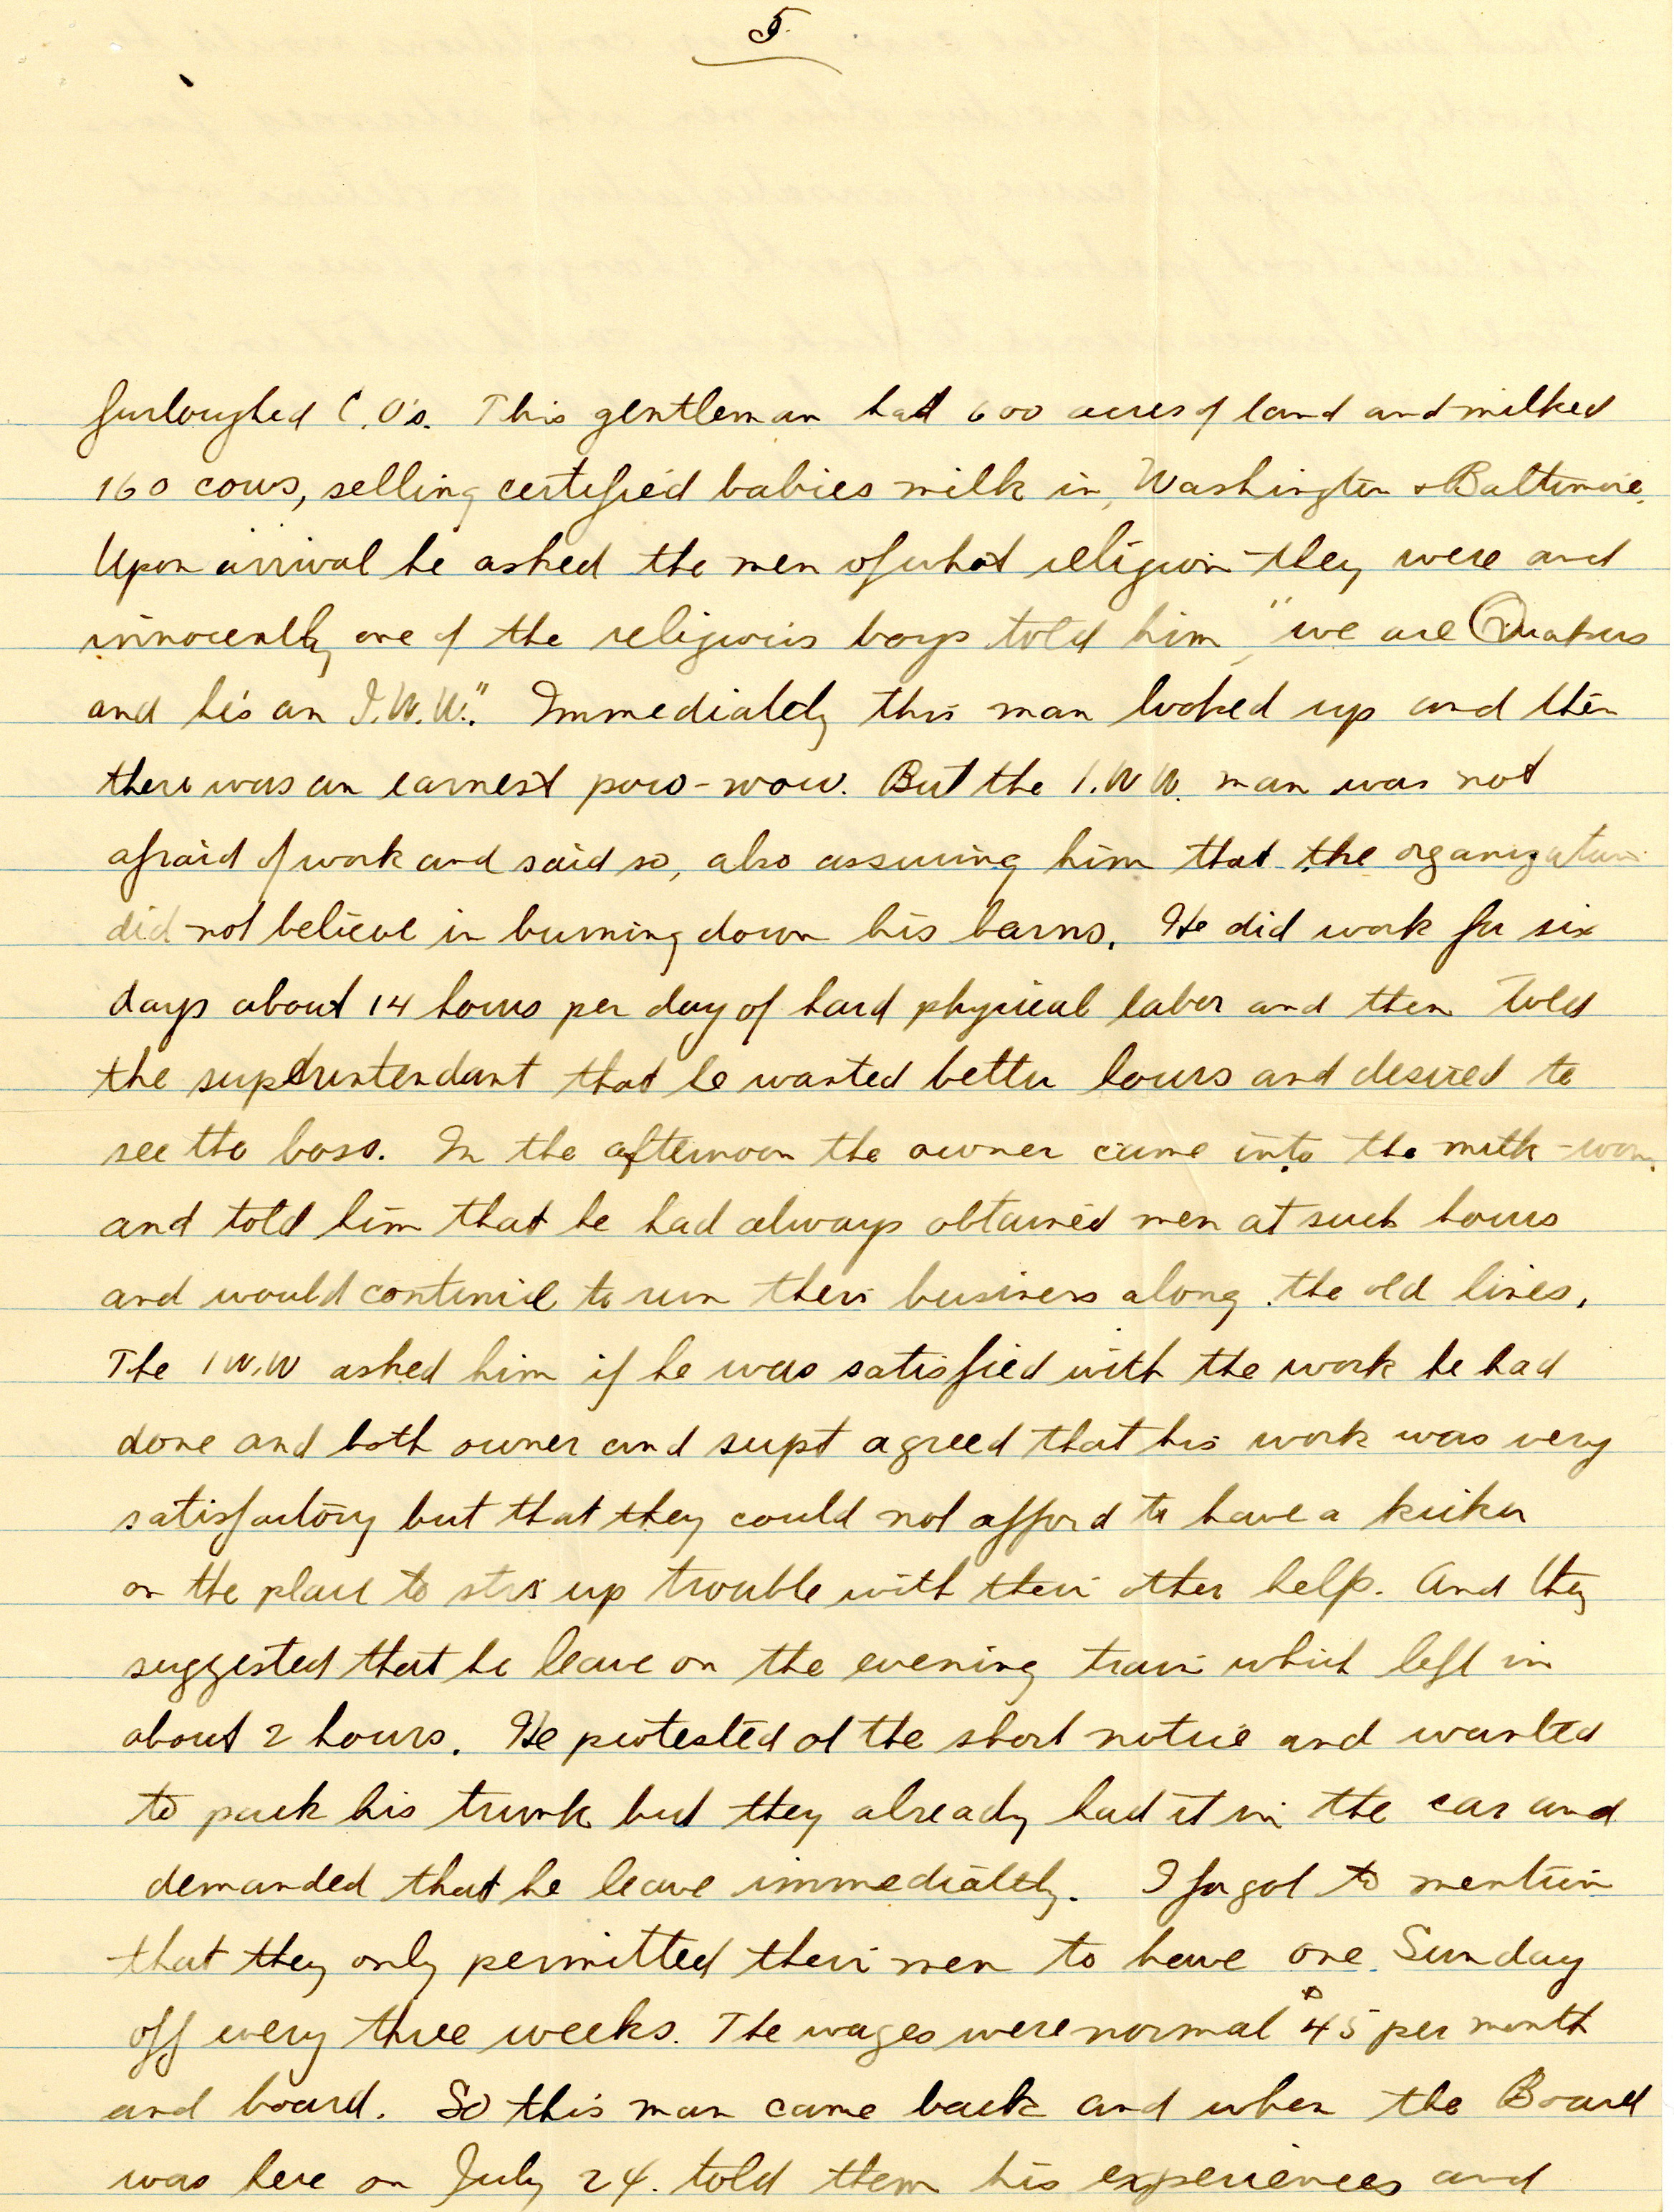 5.
furloughed C.O's. This gentleman had 600 acres of land and milked
160 cows, selling certified babies milk in, Washington & Baltimore.
Upon arrival he asked the men of what religion they were and
innocently one of the religious boys told him "we are Quakers
and he's an I.W.W." Immediately this man looked up and then
there was an earnest pow-wow. But the I.W.W. man was not
afraid of work and said so, also assuring him that the organization
did not believe in burning down his barns. He did work for six
days about 14 hours per day of hard physical labor and then told
the superintendant that he wanted better hours and desired to
see the boss. In the afternoon the owner came into the milk-room
and told him that he had always obtained men at such hours
and would continue to run their business along the old lines.
The I W.W asked him if he was satisfied with the work he had
done and both owner and supt agreed that his work was very
satisfactory but that they could not afford to have a kicker
on the place to stir up trouble with their other help. And they
suggested that he leave on the evening train which left in
about 2 hours. He protested at the short notice and wanted
to pack his trunk but they already had it in the car and
demanded that he leave immediately. I forgot to mention
that they only permitted their men to have one Sunday
off every three weeks. The wages were normal $45 per month
and board. So this man came back and when the Board
was here on July 24. told them his experiences and